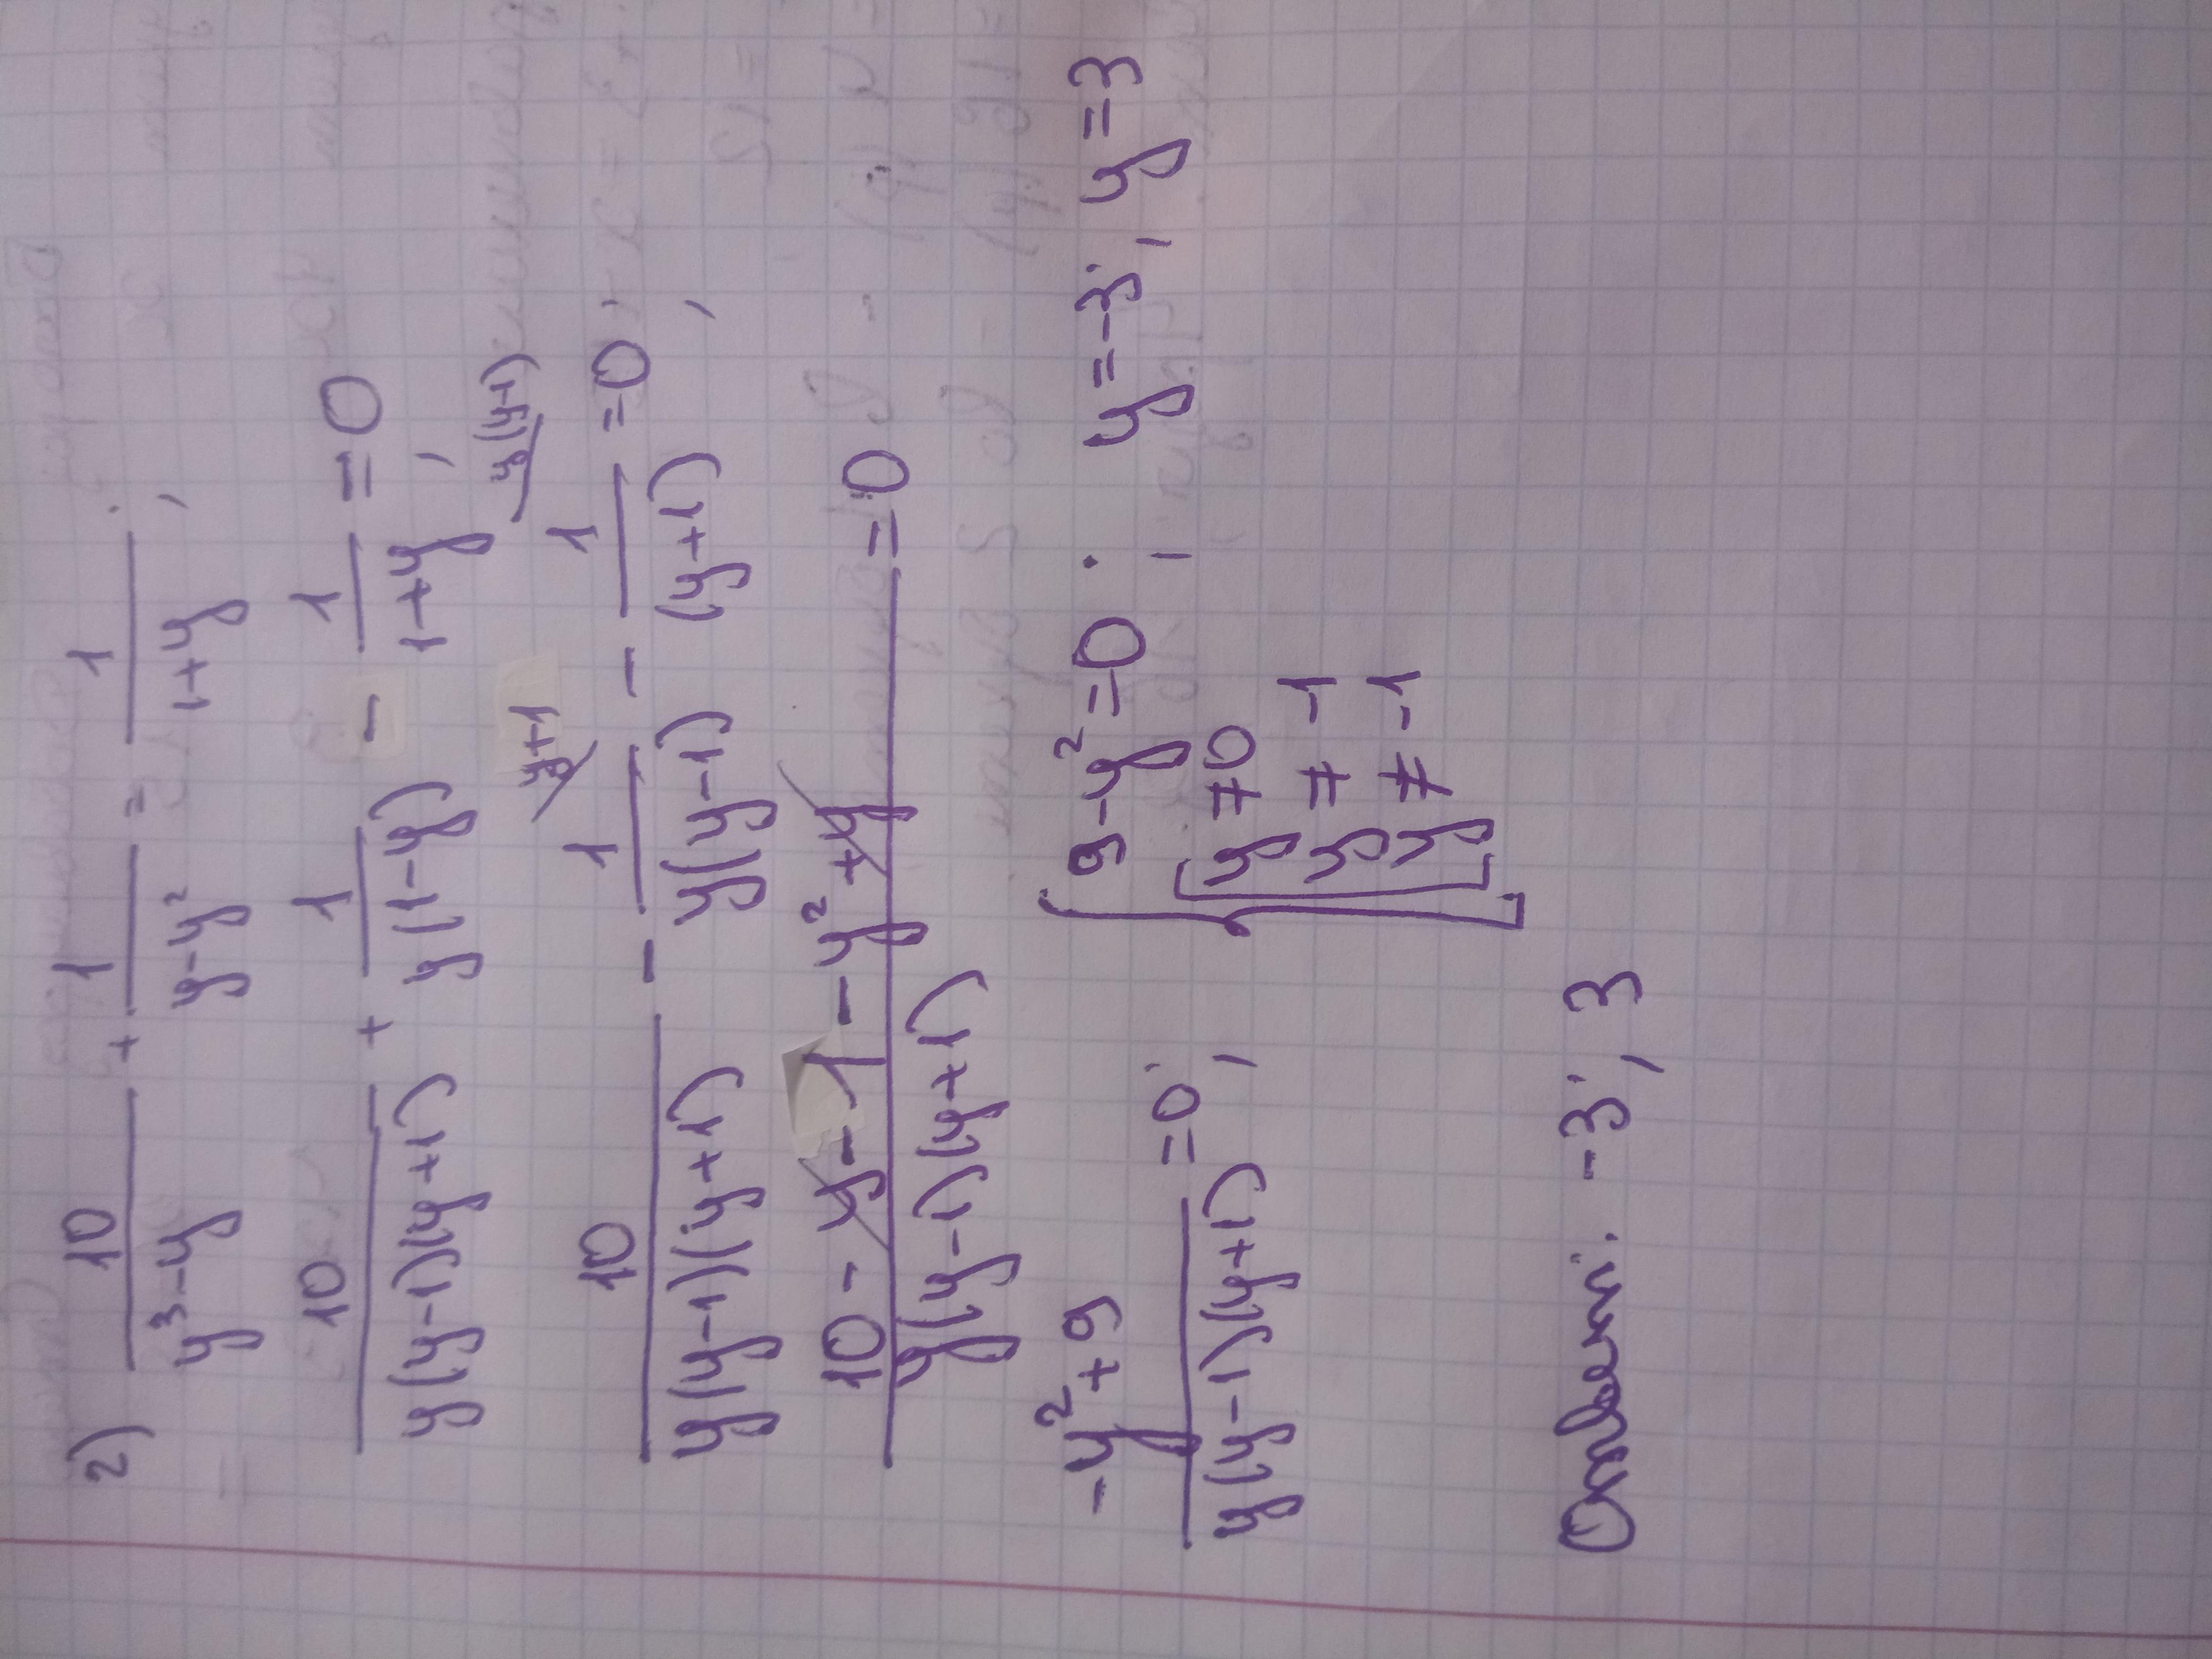 2) 10/(y³-y) + 1/(y-y²) = 1/(1+y) ;
10/(y(y-1)(y+1)) + 1/(y(1-y)) - 1/(1+y) = 0 ,
10/(y(y-1)(y+1)) - 1/(y(y-1)) (y+1 - 1/(y+1) (y(y-1) = 0 ;
(10 - y - 1 - y² + y)/(y(y-1)(y+1)) = 0
(-y² + 9)/(y(y-1)(y+1)) = 0 ; { 9 - y² = 0 ; y = -3 ; y = 3
y ≠ 0
y ≠ -1
y ≠ -1
Ответ: -3 ; 3